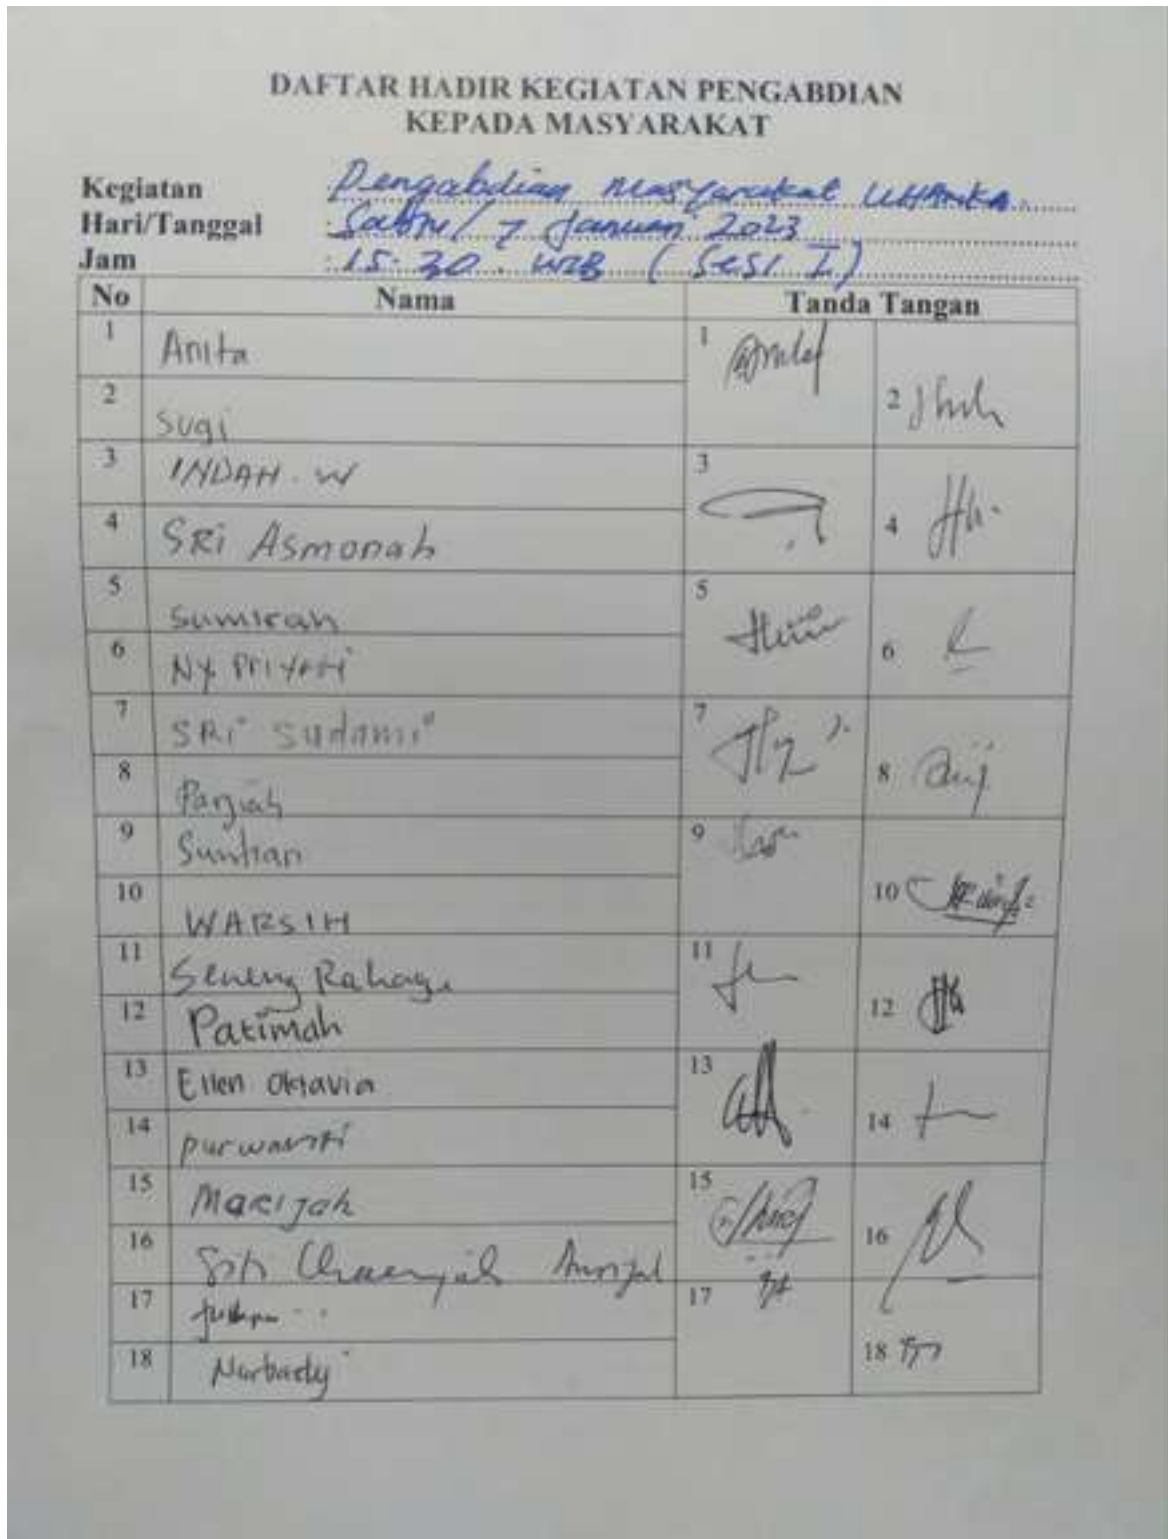 DAFTAR HADIR KEGIATAN PENGABDIAN
KEPADA MASYARAKAT
Kegiatan : Pengabdian Masyarakat UHAMKA
Hari/Tanggal : Sabtu / 7 Januari 2023
Jam : 15.30 WIB (Sesi I)
No Nama Tanda Tangan
1 Anita 1
2 Sugi 2
3 INDAH . W 3
4 SRi Asmonah 4
5 Sumirah 5
6 NY 6
7 SRi Sudarmi 7
8 8
9 9
10 WARSIH 10
11 Seneng Rahayu 11
12 Patimah 12
13 Ellen Oktavia 13
14 purwanti 14
15 Marijah 15
16 Siti 16
17 17
18 Nurbady 18